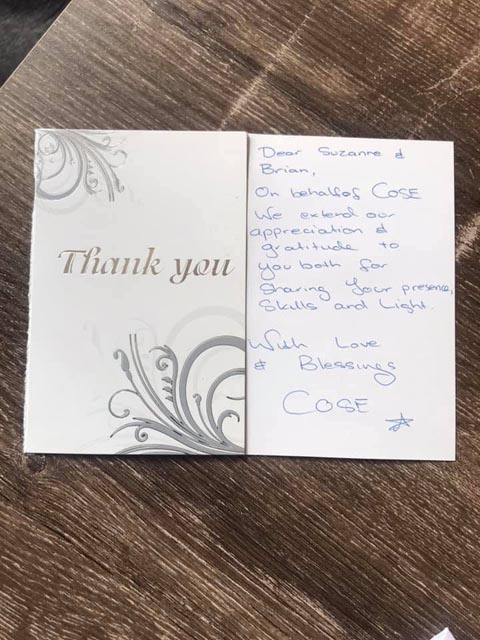 Thank you
Dear Suzanne &
Brian,
On behalf of COSE
We extend our
appreciation &
gratitude to
you both for
Sharing Your presence,
Skills and Light.
With Love
& Blessings
COSE